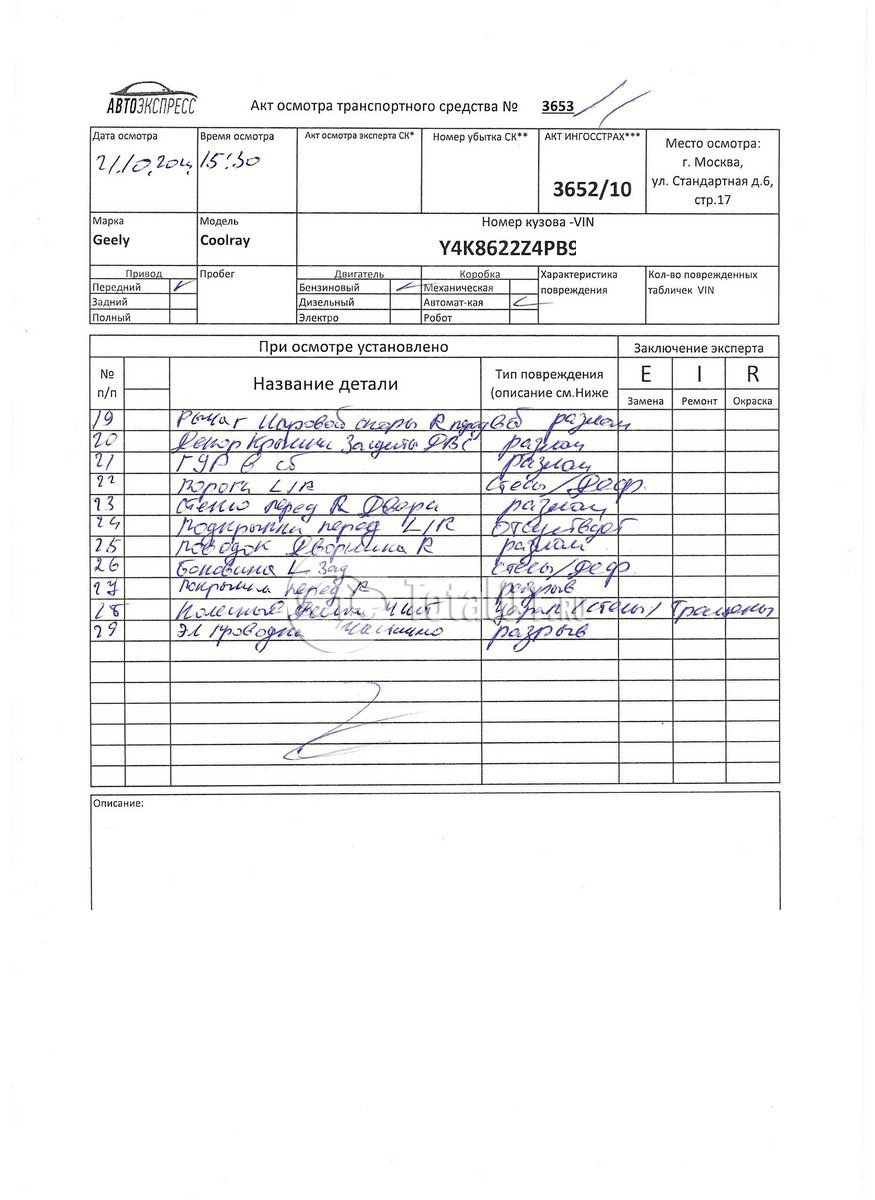 АВТОЭКСПРЕСС
Акт осмотра транспортного средства № 3653
Дата осмотра Время осмотра Акт осмотра эксперта СК* Номер убытка СК** АКТ ИНГОССТРАХ*** Место осмотра:
г. Москва,
21.10.202 15:30
3652/10 ул. Стандартная д.6,
стр.17
Марка Модель Номер кузова -VIN
Geely Coolray Y4K8622Z4PB9
Привод Пробег Двигатель Коробка Характеристика Кол-во поврежденных
Передний Бензиновый Механическая повреждения табличек VIN
Задний Дизельный Автомат-кая
Полный Электро Робот
При осмотре установлено Заключение эксперта
№ Название детали Тип повреждения E I R
п/п (описание см.Ниже Замена Ремонт Окраска
19 Рычаг Шаровой опоры R перед в сб разлом
20 Декор Крышки Защиты ДВС разлом
21 ГУР в сб разлом
22 Пороги L/R /Деф.
23 Стекло перед R Двери разлом
24 Подкрылки перед L/R Отсутствует
25 Поводок Дворника R разлом
26 Боковина L Зад /Деф.
27 Покрышка перед R разрыв
28 Колесные Диски 4 шт Трещены
29 Эл Проводка Частично разрыв
TotalCar.RU
Описание: